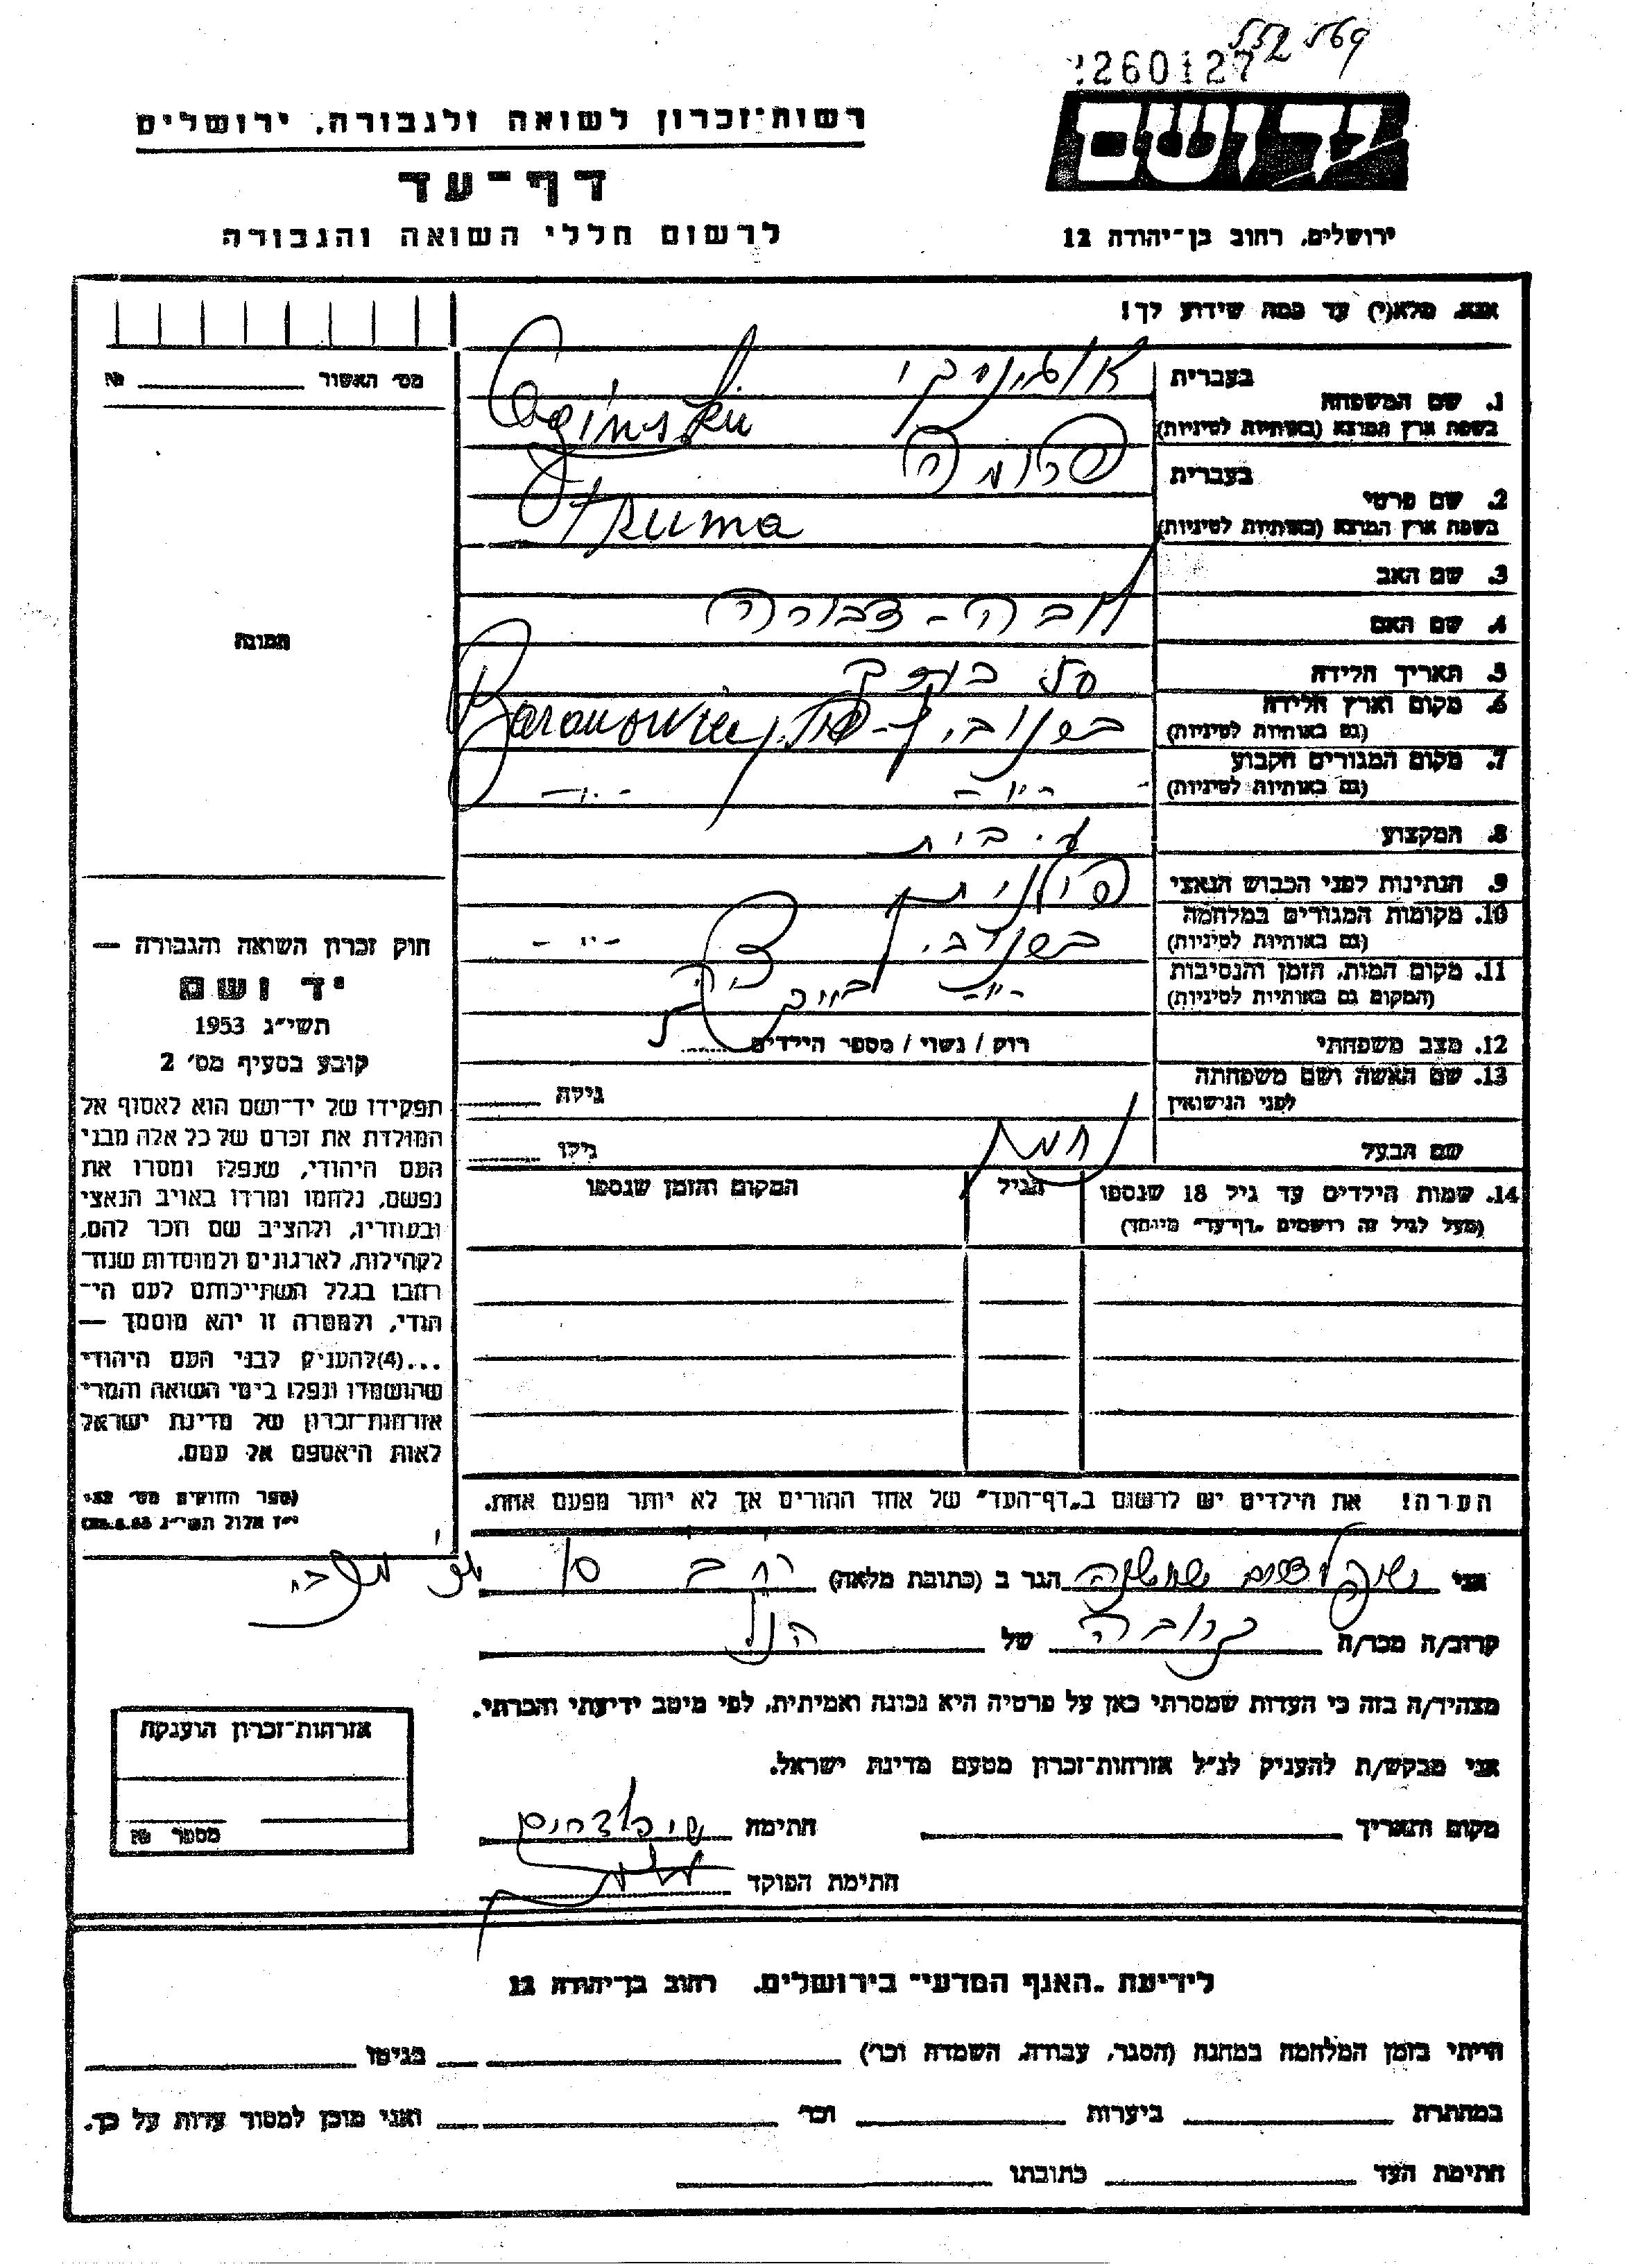 552 569
260127
רשות־זכרון לשואה ולגבורה, ירושלים
יד ושם
דף־עד
לרשום חללי השואה והגבורה
ירושלים, רחוב בן־יהודה 12
אנא, מלא(י) עד כמה שידוע לך!
מס׳ האשור № 
1. שם המשפחה
בעברית אוגינסקי
בשפת ארץ המוצא (באותיות לטיניות) Oginski
2. שם פרטי
בעברית פרומה
בשפת ארץ המוצא (באותיות לטיניות) Fruma
3. שם האב
4. שם האם חבה - דבורה
5. תאריך הלידה
6. מקום וארץ הלידה
(גם באותיות לטיניות) Baranowicz
7. מקום המגורים הקבוע
(גם באותיות לטיניות) - " - - " -
8. המקצוע ע. בית
9. הנתינות לפני הכבוש הנאצי פולנית
10. מקומות המגורים במלחמה
(גם באותיות לטיניות) - " -
11. מקום המות, הזמן והנסיבות
(המקום גם באותיות לטיניות) - " -
12. מצב משפחתי רווק / נשוי / מספר הילדים
13. שם האשה ושם משפחתה
לפני הנישואין גילה
שם הבעל גילו
14. שמות הילדים עד גיל 18 שנספו הגיל המקום והזמן שנספו
(מעל לגיל זה רושמים „דף־עד" מיוחד)
הערה! את הילדים יש לרשום ב„דף־העד" של אחד ההורים אך לא יותר מפעם אחת.
תמונה
חוק זכרון השואה והגבורה —
יד ושם
תשי״ג 1953
קובע בסעיף מס׳ 2
תפקידו של יד־ושם הוא לאסוף אל
המולדת את זכרם של כל אלה מבני
העם היהודי, שנפלו ומסרו את
נפשם, נלחמו ומרדו באויב הנאצי
ובעוזריו, ולהציב שם וזכר להם,
לקהילות, לארגונים ולמוסדות שנח־
רבו בגלל השתייכותם לעם הי־
הודי, ולמטרה זו יהא מוסמך —
...(4)להעניק לבני העם היהודי
שהושמדו ונפלו בימי השואה והמרי
אזרחות־זכרון של מדינת ישראל
לאות היאספם אל עמם.
(ספר החוקים מס׳ 132,
י״ז אלול תשי״ג 28.8.53)
אני הגר ב (כתובת מלאה)
קרוב/ה מכר/ה קרובה של הנ״ל
מצהיר/ה בזה כי העדות שמסרתי כאן על פרטיה היא נכונה ואמיתית, לפי מיטב ידיעתי והכרתי.
אני מבקש/ת להעניק לנ״ל אזרחות־זכרון מטעם מדינת ישראל.
מקום ותאריך חתימה
חתימת הפוקד
אזרחות־זכרון הוענקה
מספר №
לידיעת „האגף המדעי" בירושלים, רחוב בן־יהודה 12
הייתי בזמן המלחמה במחנה (הסגר, עבודה, השמדה וכו׳) בגיטו
במחתרת ביערות וכו׳ ואני מוכן למסור עדות על כך.
חתימת העד כתובתו